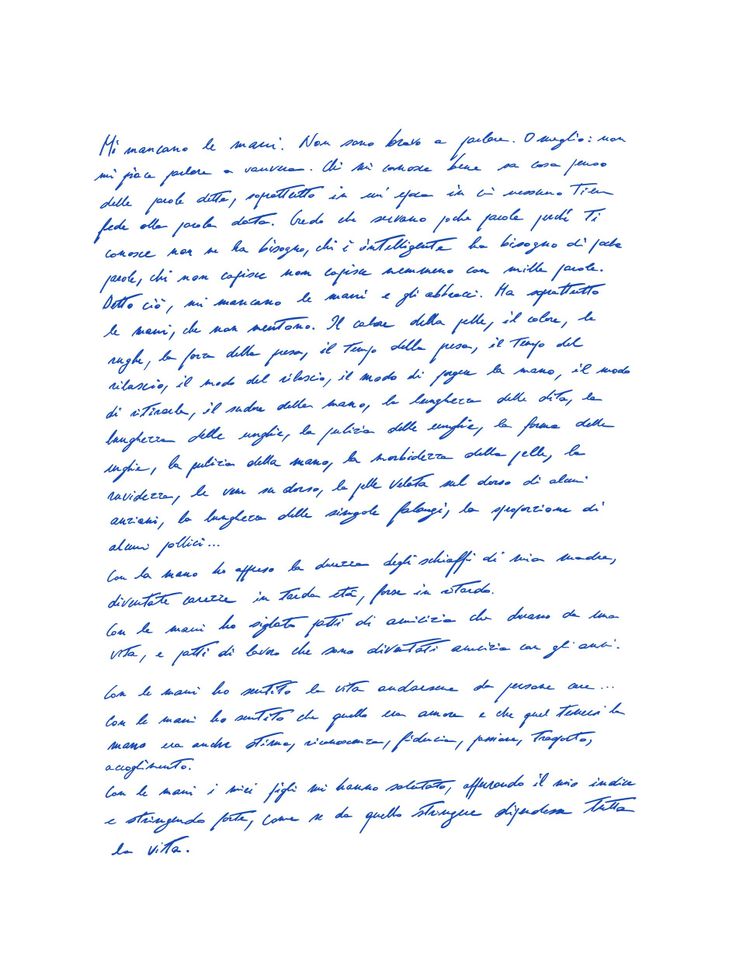 Mi mancano le mani. Non sono bravo a parlare. O meglio: non
mi piace parlare a vanvera. Chi mi conosce bene sa cosa penso
delle parole dette, soprattutto in un'epoca in cui nessuno tien
fede alla parola data. Credo che servano poche parole perché ti
conosce non ne ha bisogno, chi è intelligente ha bisogno di poche
parole, chi non capisce non capisce nemmeno con mille parole.
Detto ciò, mi mancano le mani e gli abbracci. Ma soprattutto
le mani, che non mentono. Il calore della pelle, il colore, le
rughe, la forza della presa, il tempo della presa, il tempo del
rilascio, il modo del rilascio, il modo di porgere la mano, il modo
di ritirarla, il sudore della mano, la lunghezza delle dita, la
lunghezza delle unghie, la pulizia delle unghie, la forma delle
unghie, la pulizia della mano, la morbidezza della pelle, la
ruvidezza, le vene su dorso, la pelle velata sul dorso di alcuni
anziani, la lunghezza delle singole falangi, la sproporzione di
alcuni pollici...
Con la mano ho appreso la durezza degli schiaffi di mia madre,
diventate carezze in tarda età, forse in ritardo.
Con le mani ho siglato patti di amicizia che durano da una
vita, e patti di lavoro che sono diventati amicizia con gli anni.
Con le mani ho sentito la vita andarsene da persone care...
Con le mani ho sentito che quello era amore e che quel tenersi la
mano era anche stima, riconoscenza, fiducia, passione, trasporto,
accoglimento.
Con le mani i miei figli mi hanno salutato, afferrando il mio indice
e stringendo forte, come se da quello stringere dipendesse tutta
la vita.